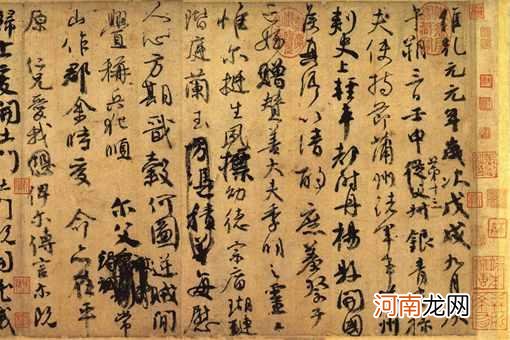 維乾元元年歲次戊戌九月庚
午朔三日壬申第十三從父銀青光祿
夫使持節蒲州諸軍事蒲州
刺史上輕車都尉丹楊縣開國
侯真卿以清酌庶羞祭于
亡姪贈贊善大夫季明之靈曰
惟爾挺生夙標幼德宗廟瑚璉
階庭蘭玉方憑積善每慰
人心方期戩穀何圖逆賊閒
釁稱兵犯順 爾父竭誠常
山作郡余時受命亦在平
原仁兄愛我俾爾傳言爾既
歸止爰開土門土門既開凶威
河南龙网